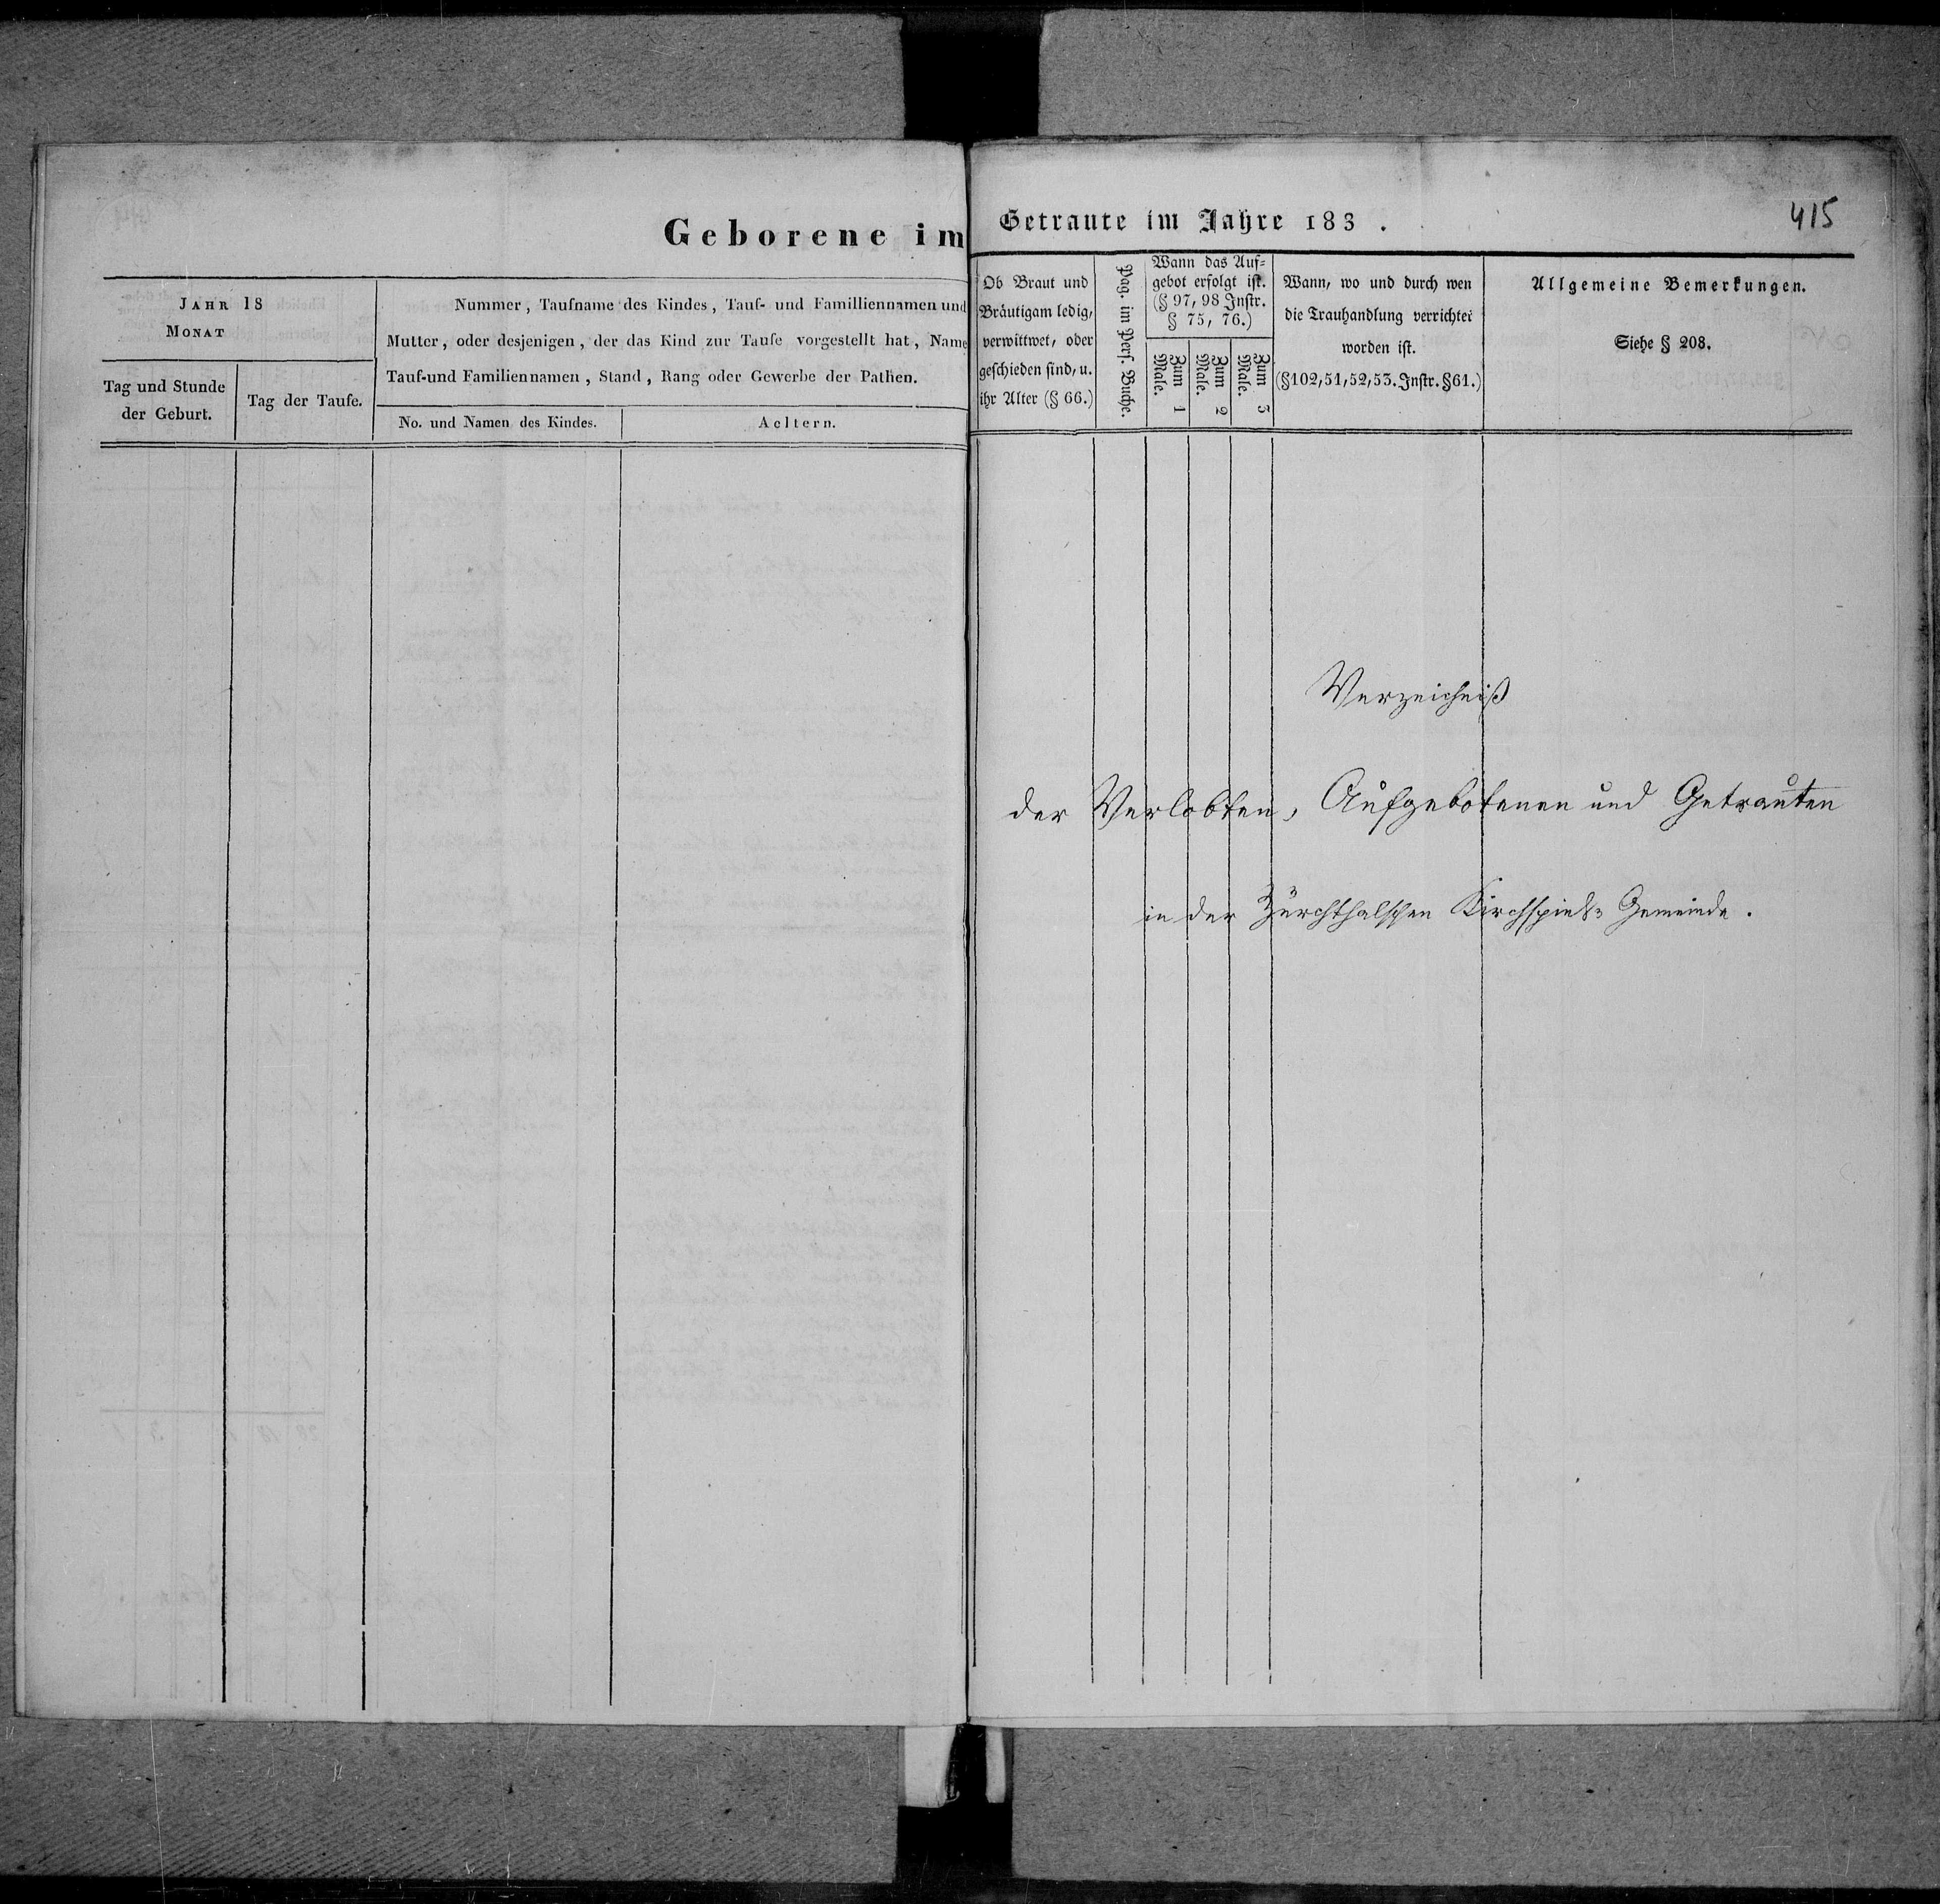 Geborene im
JAHR 18
MONAT
Tag und Stunde
der Geburt.
Tag der Taufe.
Nummer, Taufname des Kindes, Tauf- und Familliennamen und
Mutter, oder desjenigen, der das Kind zur Taufe vorgestellt hat, Name
Tauf-und Familiennamen, Stand, Rang oder Gewerbe der Pathen.
No. und Namen des Kindes.
Aeltern.
Getraute im Jahre 183 .
415
Ob Braut und
Bräutigam ledig,
verwittwet, oder
geschieden sind, u.
ihr Alter (§ 66.)
Pag. im Pers. Buche.
Wann das Auf=
gebot erfolgt ist.
(§ 97, 98 Instr.
§ 75, 76.)
Zum 1
Male.
Zum 2
Male.
Zum 3
Male.
Wann, wo und durch wen
die Trauhandlung verrichtet
worden ist.
(§102,51,52,53.Instr.§61.)
Allgemeine Bemerkungen.
Siehe § 208.
Verzeichniß
der Verlobten, Aufgebotenen und Getrauten
in der Zürchthalschen Kirchspiels= Gemeinde.